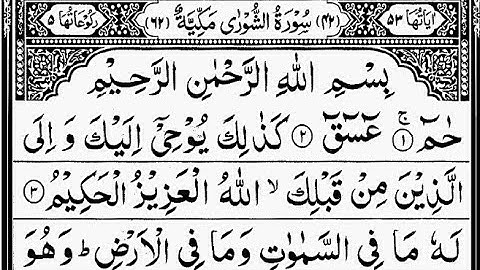 اٰیَاتُهَا ٥٣ (٤٢) سُوْرَةُ الشُّوْرٰی مَكِّیَّةٌ (٦٢) رُكُوْعَاتُهَا ٥
بِسْمِ اللهِ الرَّحْمٰنِ الرَّحِیْمِ
حٰمٓ ۚ ﴿۱﴾ عٓسٓقٓ ﴿۲﴾ كَذٰلِكَ یُوْحِیْۤ اِلَیْكَ وَ اِلَی
الَّذِیْنَ مِنْ قَبْلِكَ ۙ اللهُ الْعَزِیْزُ الْحَكِیْمُ ﴿۳﴾
لَهٗ مَا فِی السَّمٰوٰتِ وَمَا فِی الْاَرْضِ ؕ وَهُوَ